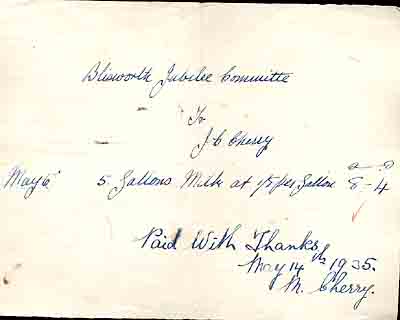 Blisworth Jubilee Committe
To
J C Cherry
May 6 5 Gallons Milk at 1/8 per Gallon 8-4
Paid With Thanks
May 14th 1935.
M. Cherry.